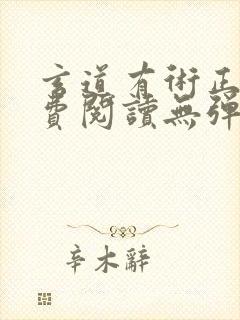 玄道有術正
費閱讀無彈
辛木辭